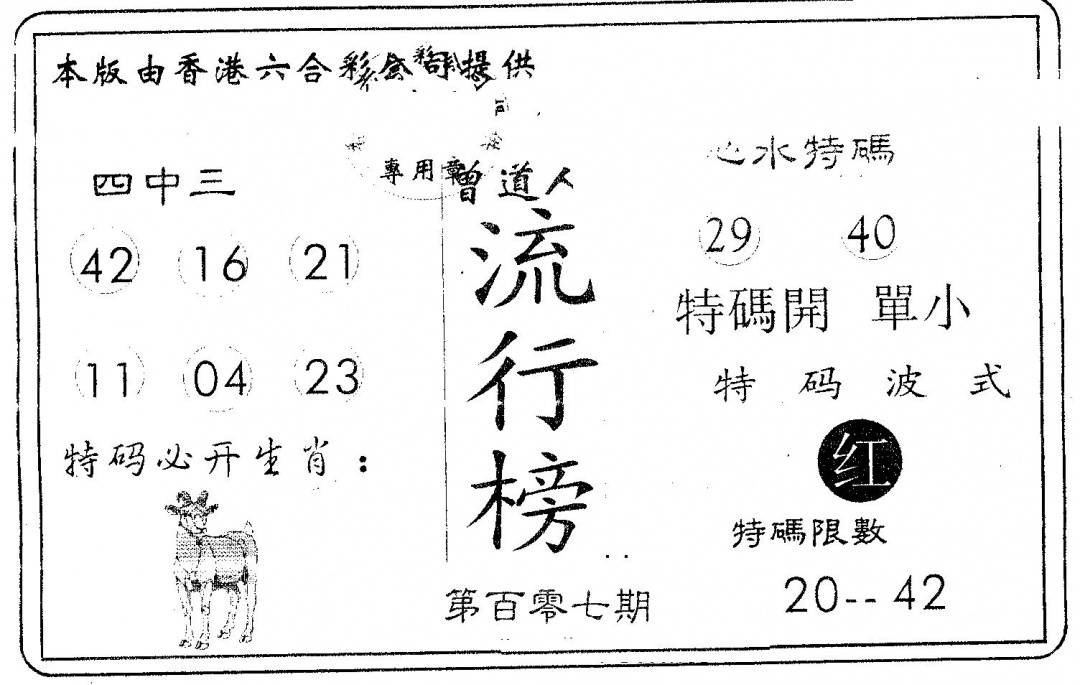 本版由香港六合彩公司提供
專用章
四中三
42 16 21
11 04 23
特码必开生肖：
曾道人
流行榜
第百零七期
心水特碼
29 40
特碼開 單小
特码波式
红
特碼限數
20-- 42